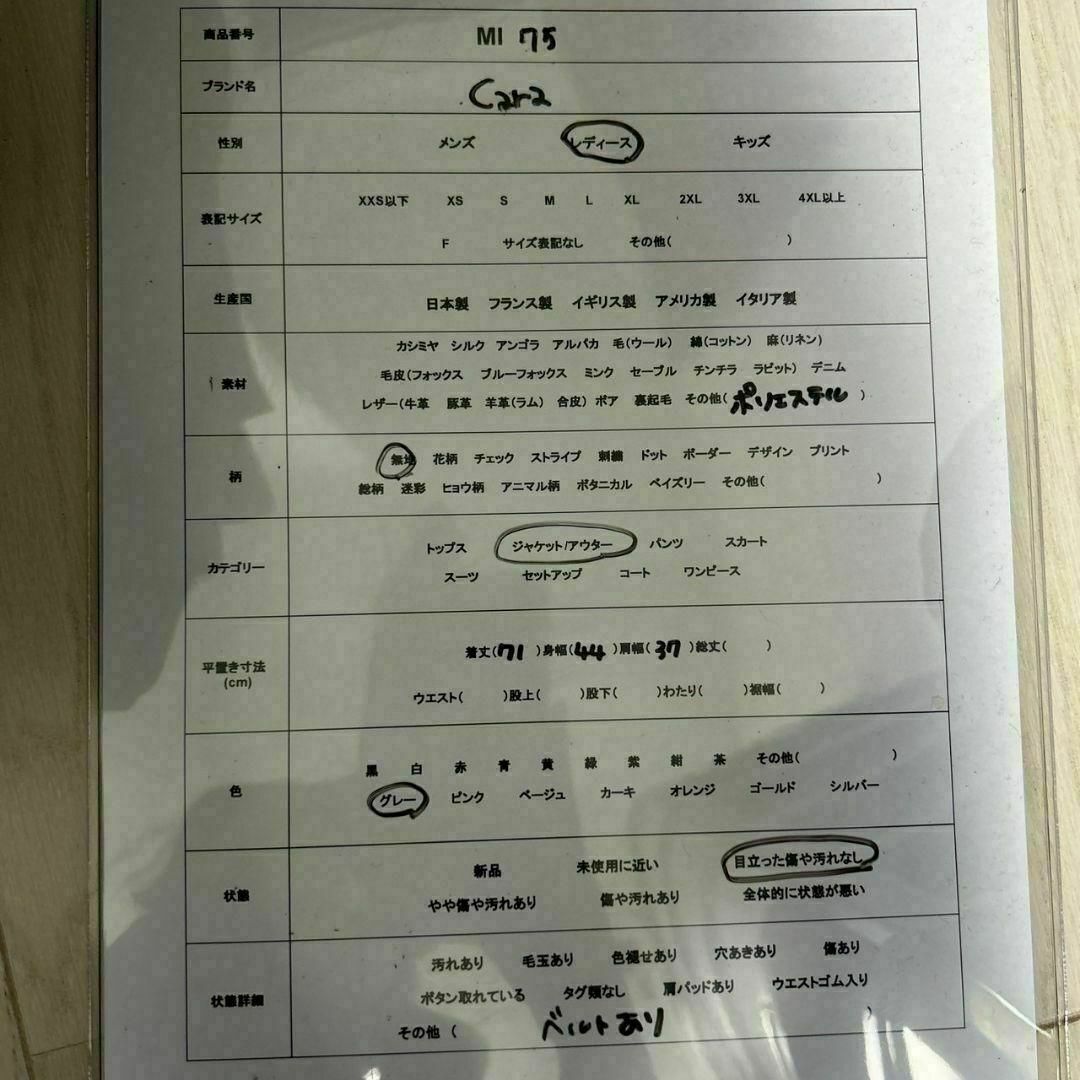 商品番号 MI 75
ブランド名 Cara
性別 メンズ レディース キッズ
表記サイズ XXS以下 XS S M L XL 2XL 3XL 4XL以上
F サイズ表記なし その他( )
生産国 日本製 フランス製 イギリス製 アメリカ製 イタリア製
素材 カシミヤ シルク アンゴラ アルパカ 毛(ウール) 綿(コットン) 麻(リネン)
毛皮(フォックス ブルーフォックス ミンク セーブル チンチラ ラビット) デニム
レザー(牛革 豚革 羊革(ラム) 合皮) ボア 裏起毛 その他( ポリエステル )
柄 無地 花柄 チェック ストライプ 刺繍 ドット ボーダー デザイン プリント
総柄 迷彩 ヒョウ柄 アニマル柄 ボタニカル ペイズリー その他( )
カテゴリー トップス ジャケット/アウター パンツ スカート
スーツ セットアップ コート ワンピース
平置き寸法 (cm) 着丈( 71 )身幅( 44 )肩幅( 37 )総丈( )
ウエスト( )股上( )股下( )わたり( )裾幅( )
色 黒 白 赤 青 黄 緑 紫 紺 茶 その他( )
グレー ピンク ベージュ カーキ オレンジ ゴールド シルバー
状態 新品 未使用に近い 目立った傷や汚れなし
やや傷や汚れあり 傷や汚れあり 全体的に状態が悪い
状態詳細 汚れあり 毛玉あり 色褪せあり 穴あきあり 傷あり
ボタン取れている タグ類なし 肩パッドあり ウエストゴム入り
その他 ( ベルトあり )